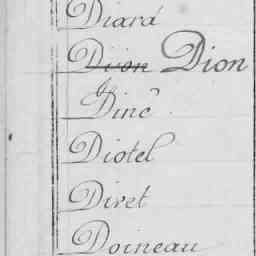 Diard
Dion Dion
Diné
Diotel
Diret
Doineau